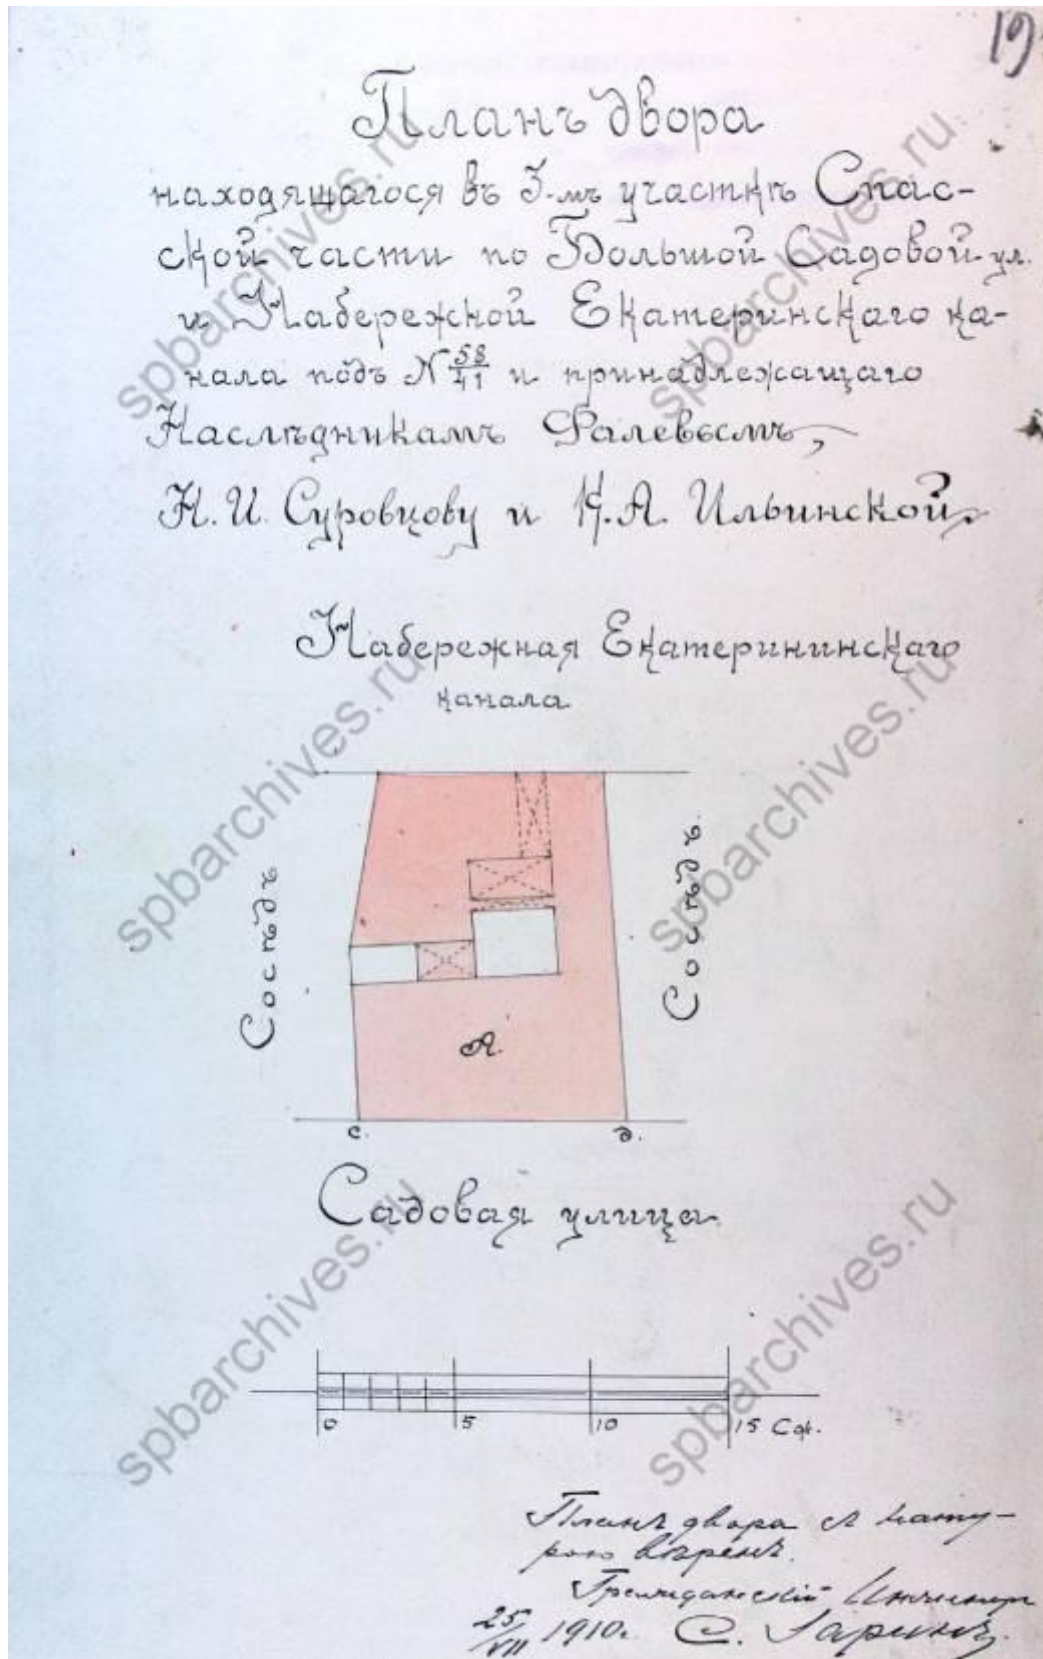 19
Планъ двора
находящагося въ 3-мъ участкѣ Спас-
ской части по Большой Садовой ул.
и Набережной Екатеринскаго ка-
нала подъ № 58/41 и принадлежащаго
Наслѣдникамъ Фалевымъ,
Н. И. Суровцову и К. А. Ильинской.
Набережная Екатерининскаго
канала
Сосѣдъ
Сосѣдъ.
А.
с.
д.
Садовая улица.
0 5 10 15 Саж.
Планъ двора съ нату-
рою вѣренъ.
Гражданскій Инженеръ
25/VII 1910г. С.
spbarchives.ru
spbarchives.ru
spbarchives.ru
spbarchives.ru
spbarchives.ru
spbarchives.ru